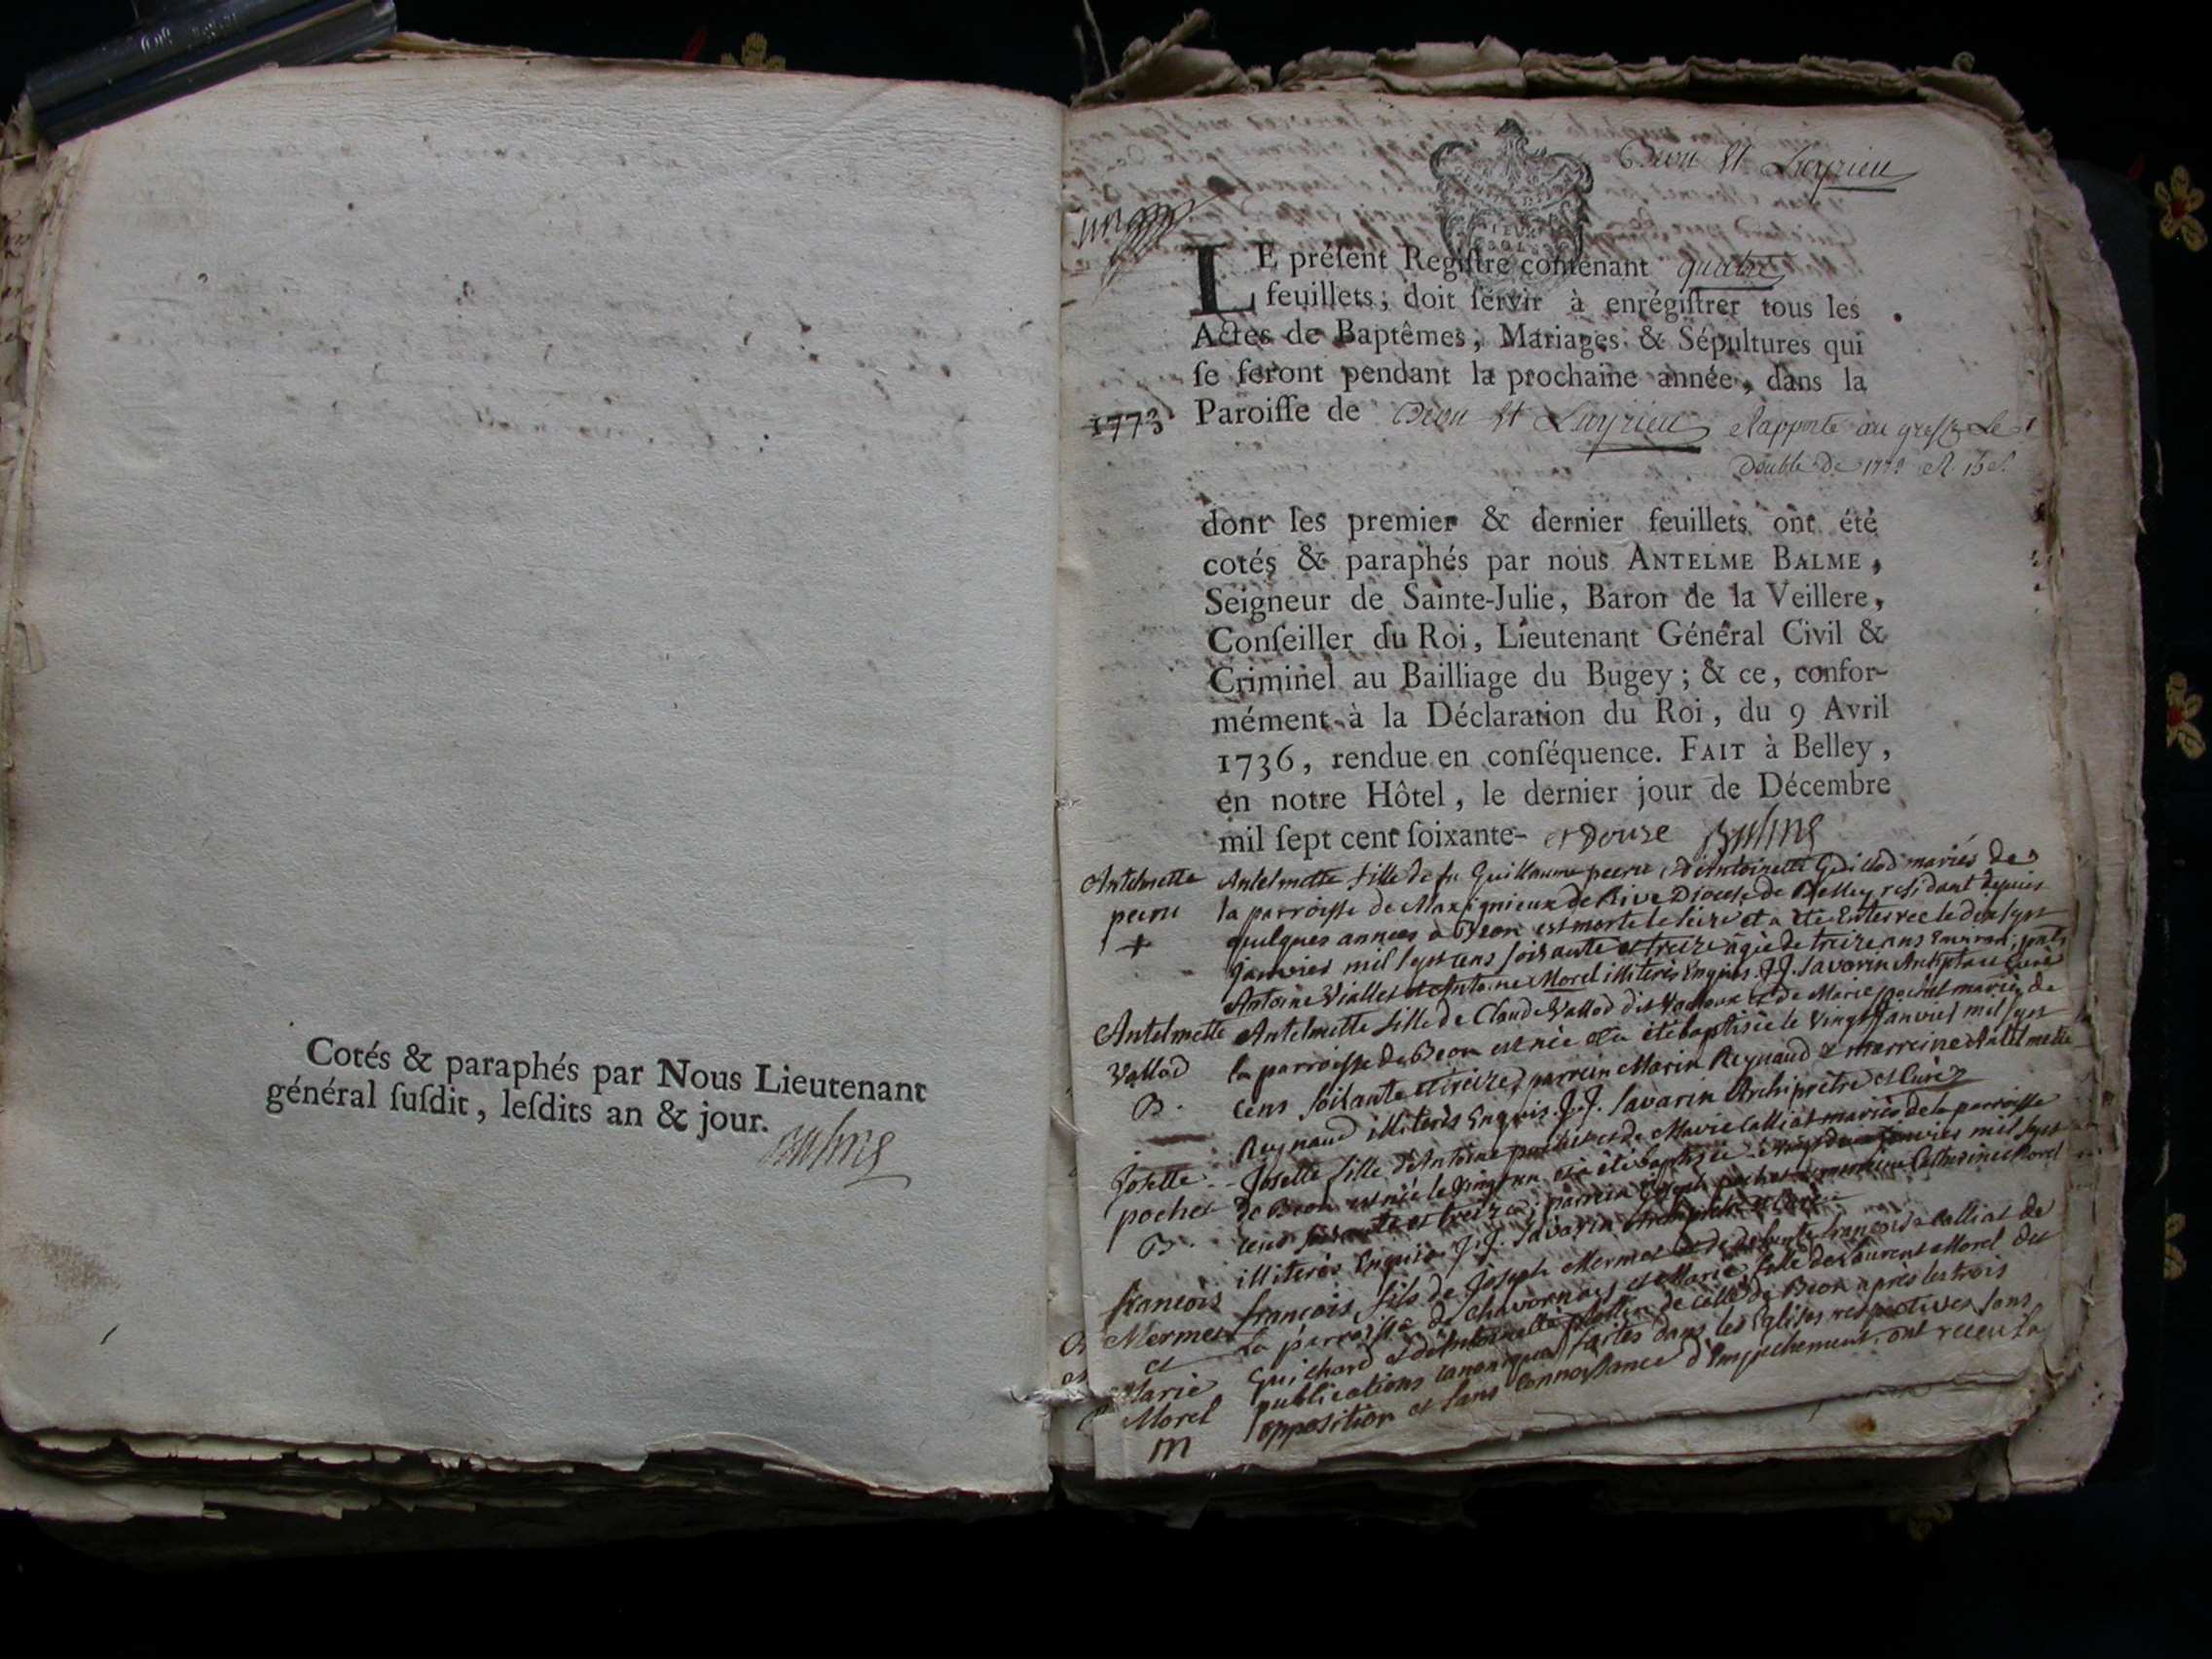 Cotés & paraphés par Nous Lieutenant
général ſuſdit, leſdits an & jour.
Balme
Beon St Luyrieu
LE préſent Regiſtre contenant quatre
feuillets, doit ſervir à enrégiſtrer tous les
Actes de Baptêmes, Mariages & Sépultures qui
ſe feront pendant la prochaine année, dans la
1773 Paroiſſe de Beon St Luyrieu Rapporté au greffe le
double de
dont les premier & dernier feuillets ont été
cotés & paraphés par nous ANTELME BALME,
Seigneur de Sainte-Julie, Baron de la Veillere,
Conſeiller du Roi, Lieutenant Général Civil &
Criminel au Bailliage du Bugey; & ce, confor-
mément à la Déclaration du Roi, du 9 Avril
1736, rendue en conſéquence. FAIT à Belley,
en notre Hôtel, le dernier jour de Décembre
mil ſept cent ſoixante- et douze Balme
Antelmette
peeru
+
Antelmette fille de fu Guillaume peeru et d'Antoinette Guillod mariés de
la parroisse de Marignieux de Rive Diocese de Belley residant depuis
quelques annees a Beon est morte le seize et a été Enterree le dix sept
janvier mil sept cens soixante et treize agée de treize ans Environ, pnts
Antoine Viallet et Antoine Morel illiterés Enquis. J.J. Savarin Archiptre curé
Antelmette
Vallod
B.
Antelmette fille de Claude Vallod dit et de Marie pochet mariés de
la parroisse de Beon est née et a été baptisée le Vingt Janvier mil sept
cens soixante et treize, parrein Marin Reynaud & marreine Antelmette
Reynaud illiterés Enquis. J.J. Savarin Archiprêtre et Curé
Josette
pochet
B.
Josette fille d'Antoine pochet et de Marie Calliat mariés de la parroisse
de Beon est née le Vingt un et a été baptisée le Vingt deux janvier mil sept
cens soixante et treize, parrein Joseph pochet et marreine Catherine Morel
illiterés Enquis. J.J. Savarin Archiprêtre et Curé
françois
Mermet
et
Marie
Morel
m
françois fils de Joseph Mermet et de defunte françoise Calliat de
la parroisse de Chavornay et Marie fille de Laurent Morel dit
Guichard et d'Antoinette de celle de Beon après les trois
publications canoniques faites dans les Eglises respectives sans
opposition et sans connoissance d'Empechement, ont receu la